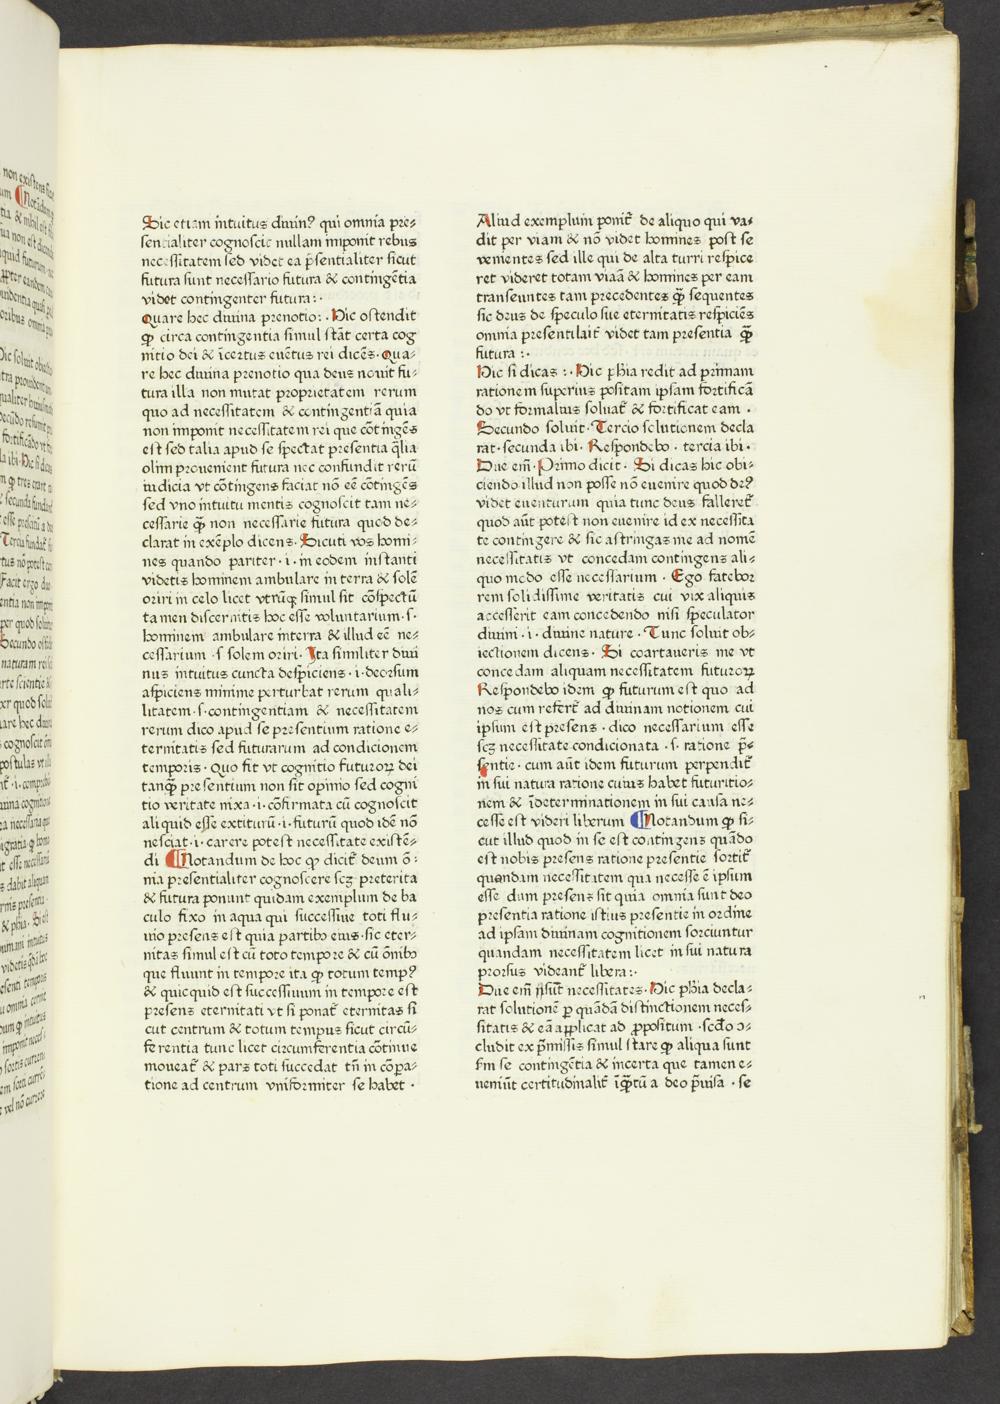 Sic etiam intuitus diuin? qui omnia pre-
sentialiter cognoscit nullam imponit rebus
necessitatem sed videt ea p̄sentialiter sicut
futura sunt necessario futura & contingētia
videt contingenter futura:·
Quare hec diuina prenotio:· Hic ostendit
ꝙ circa contingentia simul stāt certa cog
nitio dei & īcertus euētus rei dicēs· Qua-
re hec diuina prenotio qua deus nouit fu-
tura illa non mutat proprietatem rerum
quo ad necessitatem & contingentiā quia
non imponit necessitatem rei que cōtingēs
est sed talia apud se spectat presentia q̄lia
olim prouenient futura nec confundit rerū
iudicia vt cōtingens faciat nō eē cōtingēs
sed vno intuitu mentis cognoscit tam ne-
cessarie ꝙ̄ non necessarie futura quod de-
clarat in exēplo dicens· Sicuti vos homi-
nes quando pariter · i · in eodem instanti
videtis hominem ambulare in terra & solē
oriri in celo licet vtrūqꝫ simul sit cōspectū
tamen discernitis hoc esse voluntarium· s·
hominem ambulare interra & illud eē ne-
cessarium · s solem oriri· Ita similiter diui
nus intuitus cuncta despiciens· i· deorsum
aspiciens minime perturbat rerum quali-
litatem· s· contingentiam & necessitatem
rerum dico apud se presentium ratione e-
ternitatis sed futurarum ad condicionem
temporis· Quo fit vt cognitio futuroꝝ dei
tanꝙ̄ presentium non sit opinio sed cogni
tio veritate nixa· i· cōfirmata cū cognoscit
aliquid esse extiturū· i· futurū quod idē nō
nesciat· i· carere potest necessitate existē-
di ¶Notandum de hoc ꝙ dicit̄ deum ō-
nia presentialiter cognoscere scꝫ preterita
& futura ponunt quidam exemplum de ba
culo fixo in aqua qui successiue toti flu-
uio presens est quia partibꝰ eius· sic eter-
nitas simul est cū toto tempore & cū ōnibꝰ
que fluunt in tempore ita ꝙ totum temp?
& quicquid est successiuum in tempore est
presens eternitati vt si ponat̄ eternitas si
cut centrum & totum tempus sicut circū-
ferentia tunc licet circumferentia cōtinue
moueat̄ & pars toti succedat tn̄ in cōpa-
tione ad centrum vniformiter se habet ·
Aliud exemplum ponit̄ de aliquo qui va-
dit per viam & nō videt homines post se
venientes sed ille qui de alta turri respice
ret videret totam viaā & homines per eam
transeuntes tam precedentes ꝙ̄ sequentes
sic deus de speculo sue eternitatis respiciēs
omnia presentilait̄ videt tam presentia ꝙ̄
futura :·
Hic si dicas :· Hic phīa redit ad primam
rationem superius positam ipsam fortificā
do vt formalius soluat̄ & fortificat eam ·
Secundo soluit· Tercio solutionem decla
rat· secunda ibi· Respondebo · tercia ibi·
Due em̄· Primo dicit· Si dicas hic obi-
ciendo illud non posse nō euenire quod de?
videt euenturum quia tunc deus falleret̄
quod aūt potest non euenire id ex necessita
te contingere & sic astringas me ad nomē
necessitatis vt concedam contingens ali-
quo modo esse necessarium · Ego fatebor
rem solidissime veritatis cui vix aliquis
accesserit eam concedendo nisi speculator
diuini · i · diuine nature · Tunc soluit ob-
iectionem dicens· Si coartaueris me vt
concedam aliquam necessitatem futuroꝝ
Respondebo idem ꝙ futurum est quo ad
nos cum refert̄ ad diuinam notionem cui
ipsum est presens · dico necessarium esse
scꝫ necessitate condicionata · s· ratione p̄-
sentie · cum aūt idem futurum perpendit̄
in sui natura ratione cuius habet futuritio-
nem & īdeterminationem in sui causa ne-
cesse est videri liberum ¶Notandum ꝙ si-
cut illud quod in se est contingens quādo
est nobis presens ratione presentie sortit̄
quandam necessitatem qua necesse ē ipsum
esse dum presens sit quia omnia sunt deo
presentia ratione istius presentie in ordine
ad ipsam diuinam cognitionem sorciuntur
quandam necessitatem licet in sui natura
prorsus videant̄ libera:·
Due em̄ sūt necessitates· Hic phīa decla-
rat solutionē ꝑ quādā distinctionem neces-
sitatis & eā applicat ad ꝓpositum · scdō ↄ-
cludit ex p̄missis simul stare ꝙ aliqua sunt
fm se contingētia & incerta que tamen e-
ueniūt certitudinalit̄ īꝙ̄tū a deo p̄uisa · se